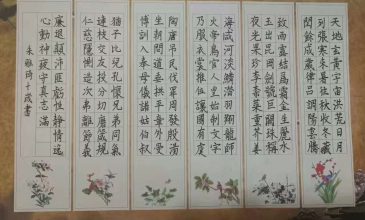 天地玄黃宇宙洪荒日月
列張寒來暑往秋收冬藏
閏餘成歲律呂調陽雲騰
致雨露結為霜金生麗水
玉出崑岡劍號巨闕珠稱
夜光果珍李柰菜重芥薑
海鹹河淡鱗潛羽翔龍師
火帝鳥官人皇始制文字
乃服衣裳推位讓國有虞
陶唐弔民伐罪周發殷湯
坐朝問道垂拱平章外受
傅訓入奉母儀諸姑伯叔
猶子比兒孔懷兄弟同氣
連枝交友投分切磨箴規
仁慈隱惻造次弗離節義
廉退顛沛匪虧性靜情逸
心動神疲守真志滿
朱雅琦十歲書